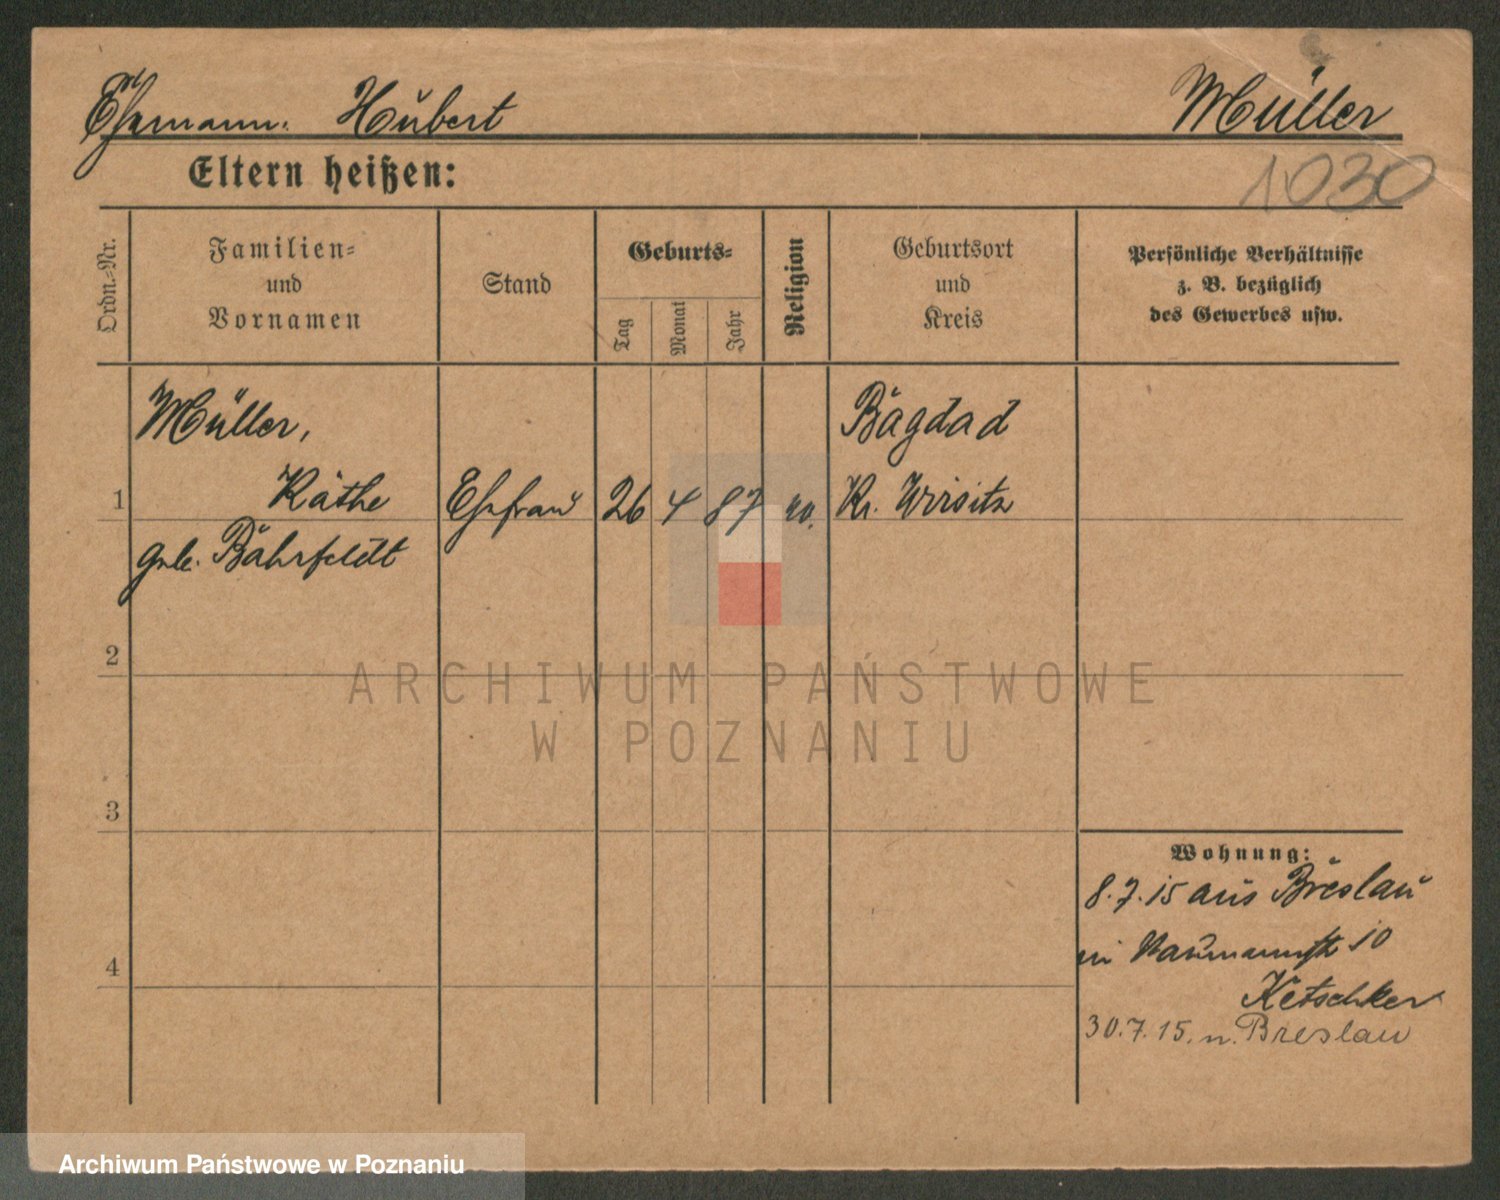 Ehemann: Hubert Müller
Eltern heißen:
1030
Ordn.-Nr.
Familien-
und
Vornamen
Stand
Geburts-
Tag
Monat
Jahr
Religion
Geburtsort
und
Kreis
Persönliche Verhältnisse
z. B. bezüglich
des Gewerbes usw.
Müller,
Bagdad
1 Käthe Ehefrau 26 4 87 ev. Kr. Wirsitz
geb. Bahrfeldt
2
ARCHIWUM PAŃSTWOWE
W POZNANIU
3
Wohnung:
8.7.15 aus Breslau
in Naumannstr 10
4
Ketschker
30.7.15. n. Breslau
Archiwum Państwowe w Poznaniu